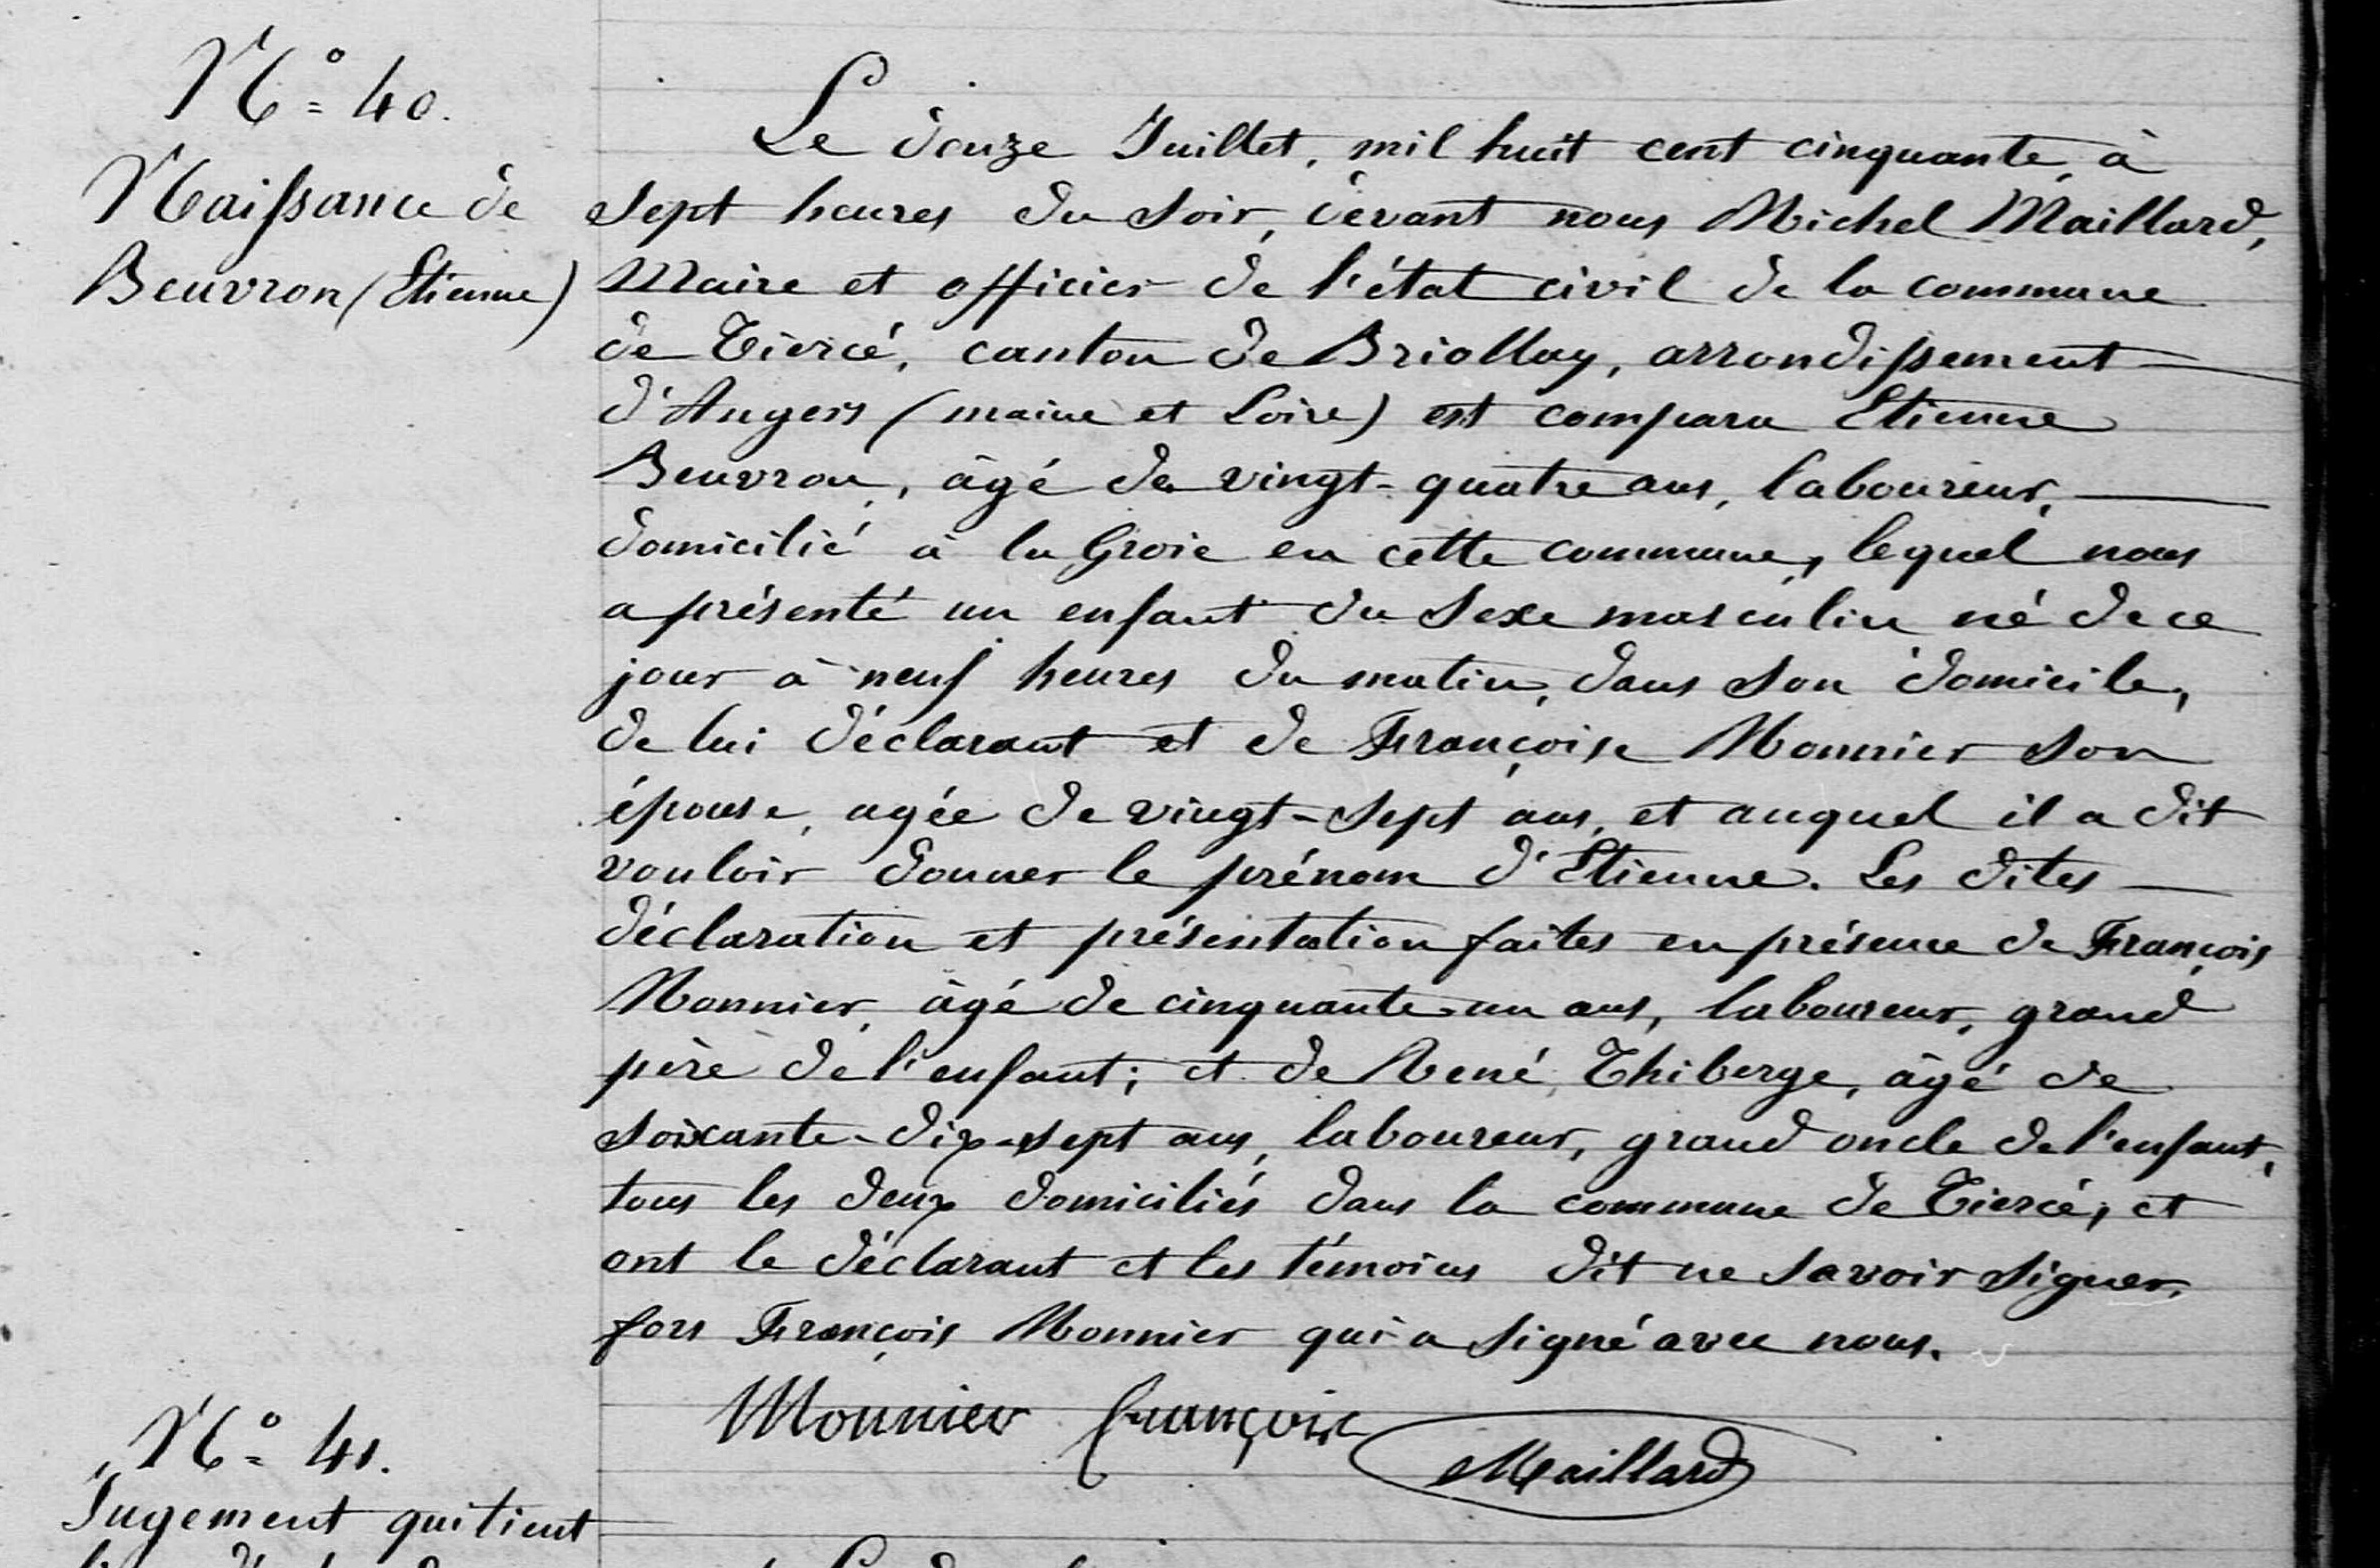 N° 40.
Naissance de
Beuvron (Etienne)
Le douze Juillet, mil huit cent cinquante, à
sept heures du soir, devant nous Michel Maillard,
Maire et officier de l'état civil de la commune
de Tiercé, canton de Briollay, arrondissement
d'Angers (maine et Loire) est comparu Etienne
Beuvron, âgé de vingt-quatre ans, laboureur,
domicilié à la Groie en cette commune, lequel nous
a présenté un enfant du sexe masculin né de ce
jour à neuf heures du matin, dans son domicile,
de lui déclarant et de Françoise Monnier son
épouse, agée de vingt-sept ans, et auquel il a dit
vouloir donner le prénom d'Etienne. Les dites
déclaration et présentation faites en présence de François
Monnier, âgé de cinquante-un ans, laboureur, grand
père de l'enfant; et de René Thiberge, âgé de
soixante-dix-sept ans, laboureur, grand oncle de l'enfant,
tous les deux domiciliés dans la commune de Tiercé, et
ont le déclarant et les témoins dit ne savoir signer,
fors François Monnier qui a signé avec nous.
Monnier françois
Maillard
N° 41.
Jugement qui tient